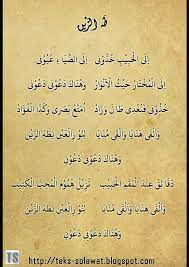 قمر الزين
إِلَى الْحَبِيْبِ خُذُوْنِي إِلَى الضِّيَاءِ عُيُوْنِي
إِلَى الْمُخْتَارِ حَيْثُ الْأَنْوَارُ وَهُنَاكَ دَعُوْنِي دَعُوْنِي
خُذُوْنِي فَبُعْدِي طَالَ وَزَادَ أُمَتِّعُ بَصَرِي وَكَذَا الْفُؤَادَ
وَأَلْقَى هَنَايَا وَأَلْقَى مُنَايَا لِنُوْرِ الْعَيْنِ بَطَهَ الزَّيْنِ
وَهُنَاكَ دَعُوْنِي دَعُوْنِي
دَقَائِقُ عِنْدَ الْحَبِيْبِ تُزِيْلُ هُمُوْمَ الْمُحِبِّ الْكَئِيْبِ
وَأَلْقَى هَنَايَا مُنَايَا لِنُوْرِ الْعَيْنِ بَطَهَ الزَّيْنِ
وَهُنَاكَ دَعُوْنِي دَعُوْنِي
TS
http://teks-solawat.blogspot.com